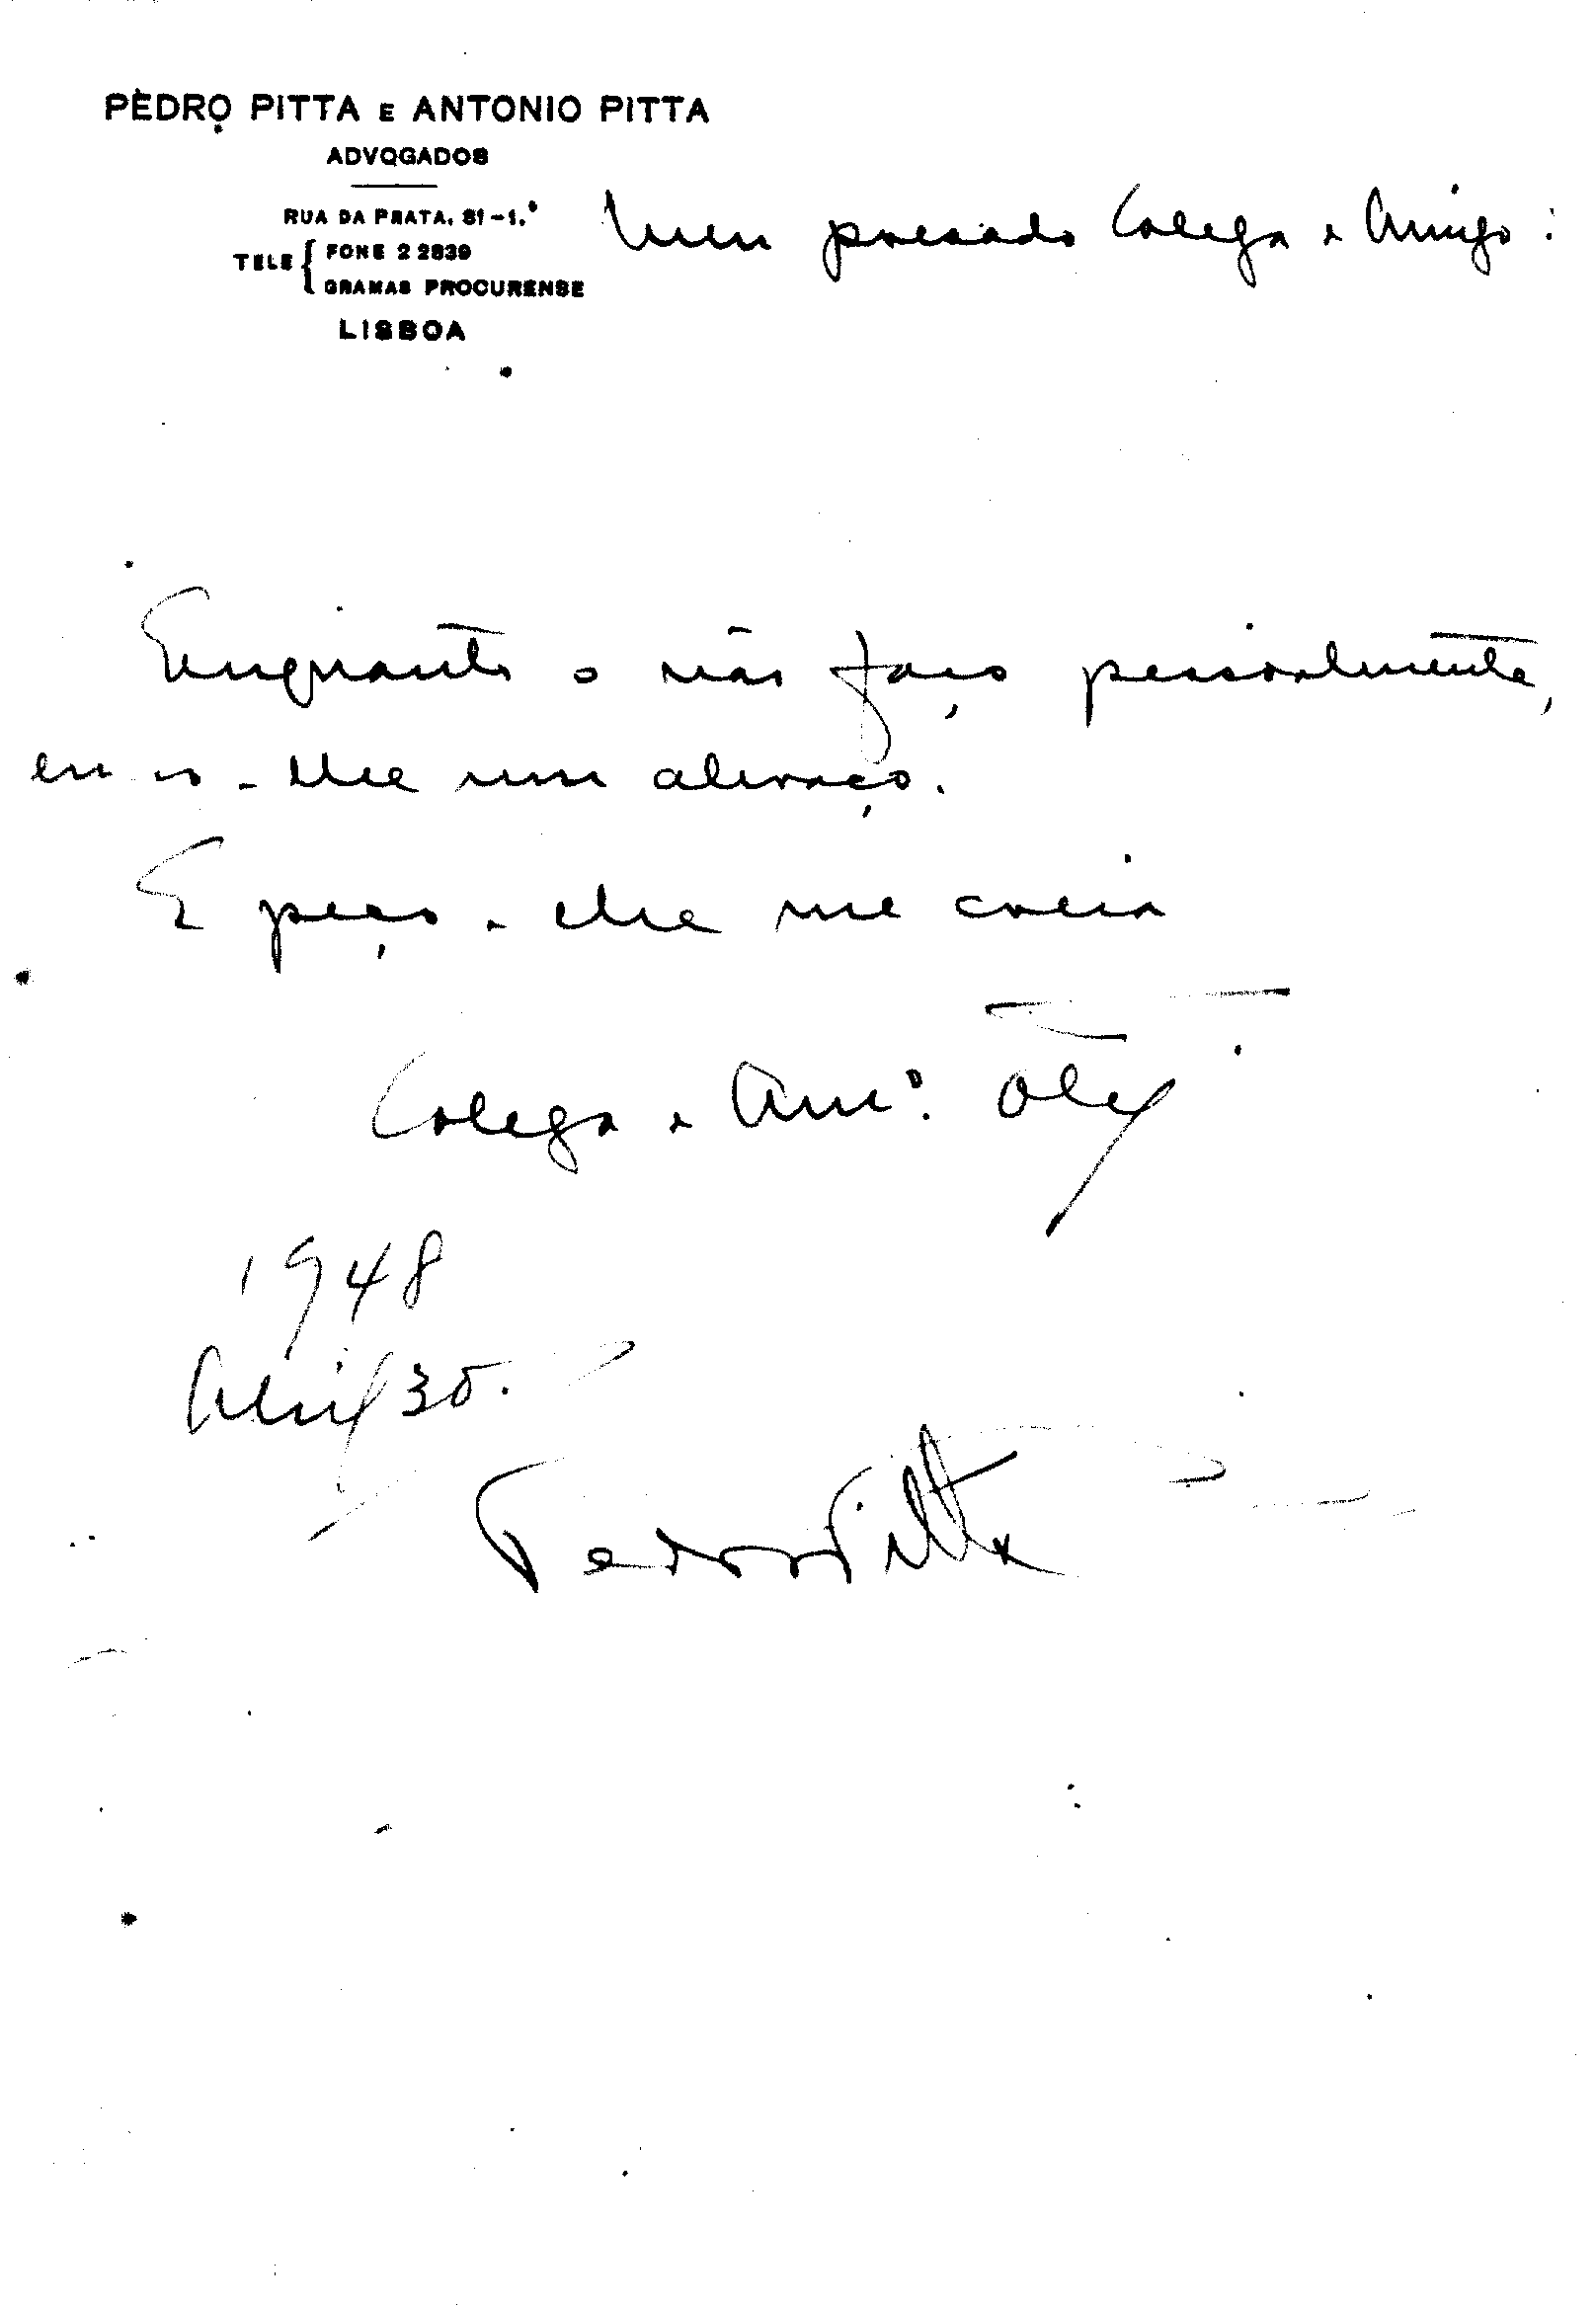 PEDRO PITTA E ANTONIO PITTA
ADVOGADOS
RUA DA PRATA, 81-1.º
TELE { FONE 2 2839
GRAMAS PROCURENSE
LISBOA
Meu presado Colega e Amigo:
Enquanto o não faço pessoalmente,
envio-lhe um abraço.
E peço-lhe me creia
Colega e Am.º
1948
Abril 30.
Pedro Pitta